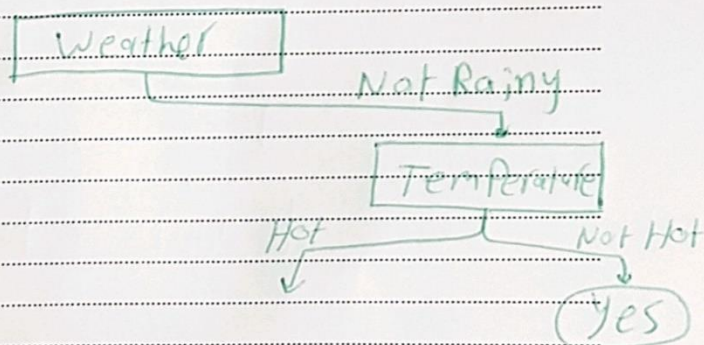 Weather
Not Rainy
Temperature
Hot
Not Hot
Yes